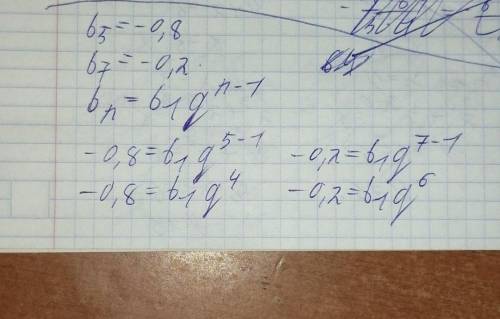 b₅ = -0,8
b₇ = -0,2.
bₙ = b₁qⁿ⁻¹
-0,8 = b₁q⁵⁻¹ -0,2 = b₁q⁷⁻¹
-0,8 = b₁q⁴ -0,2 = b₁q⁶